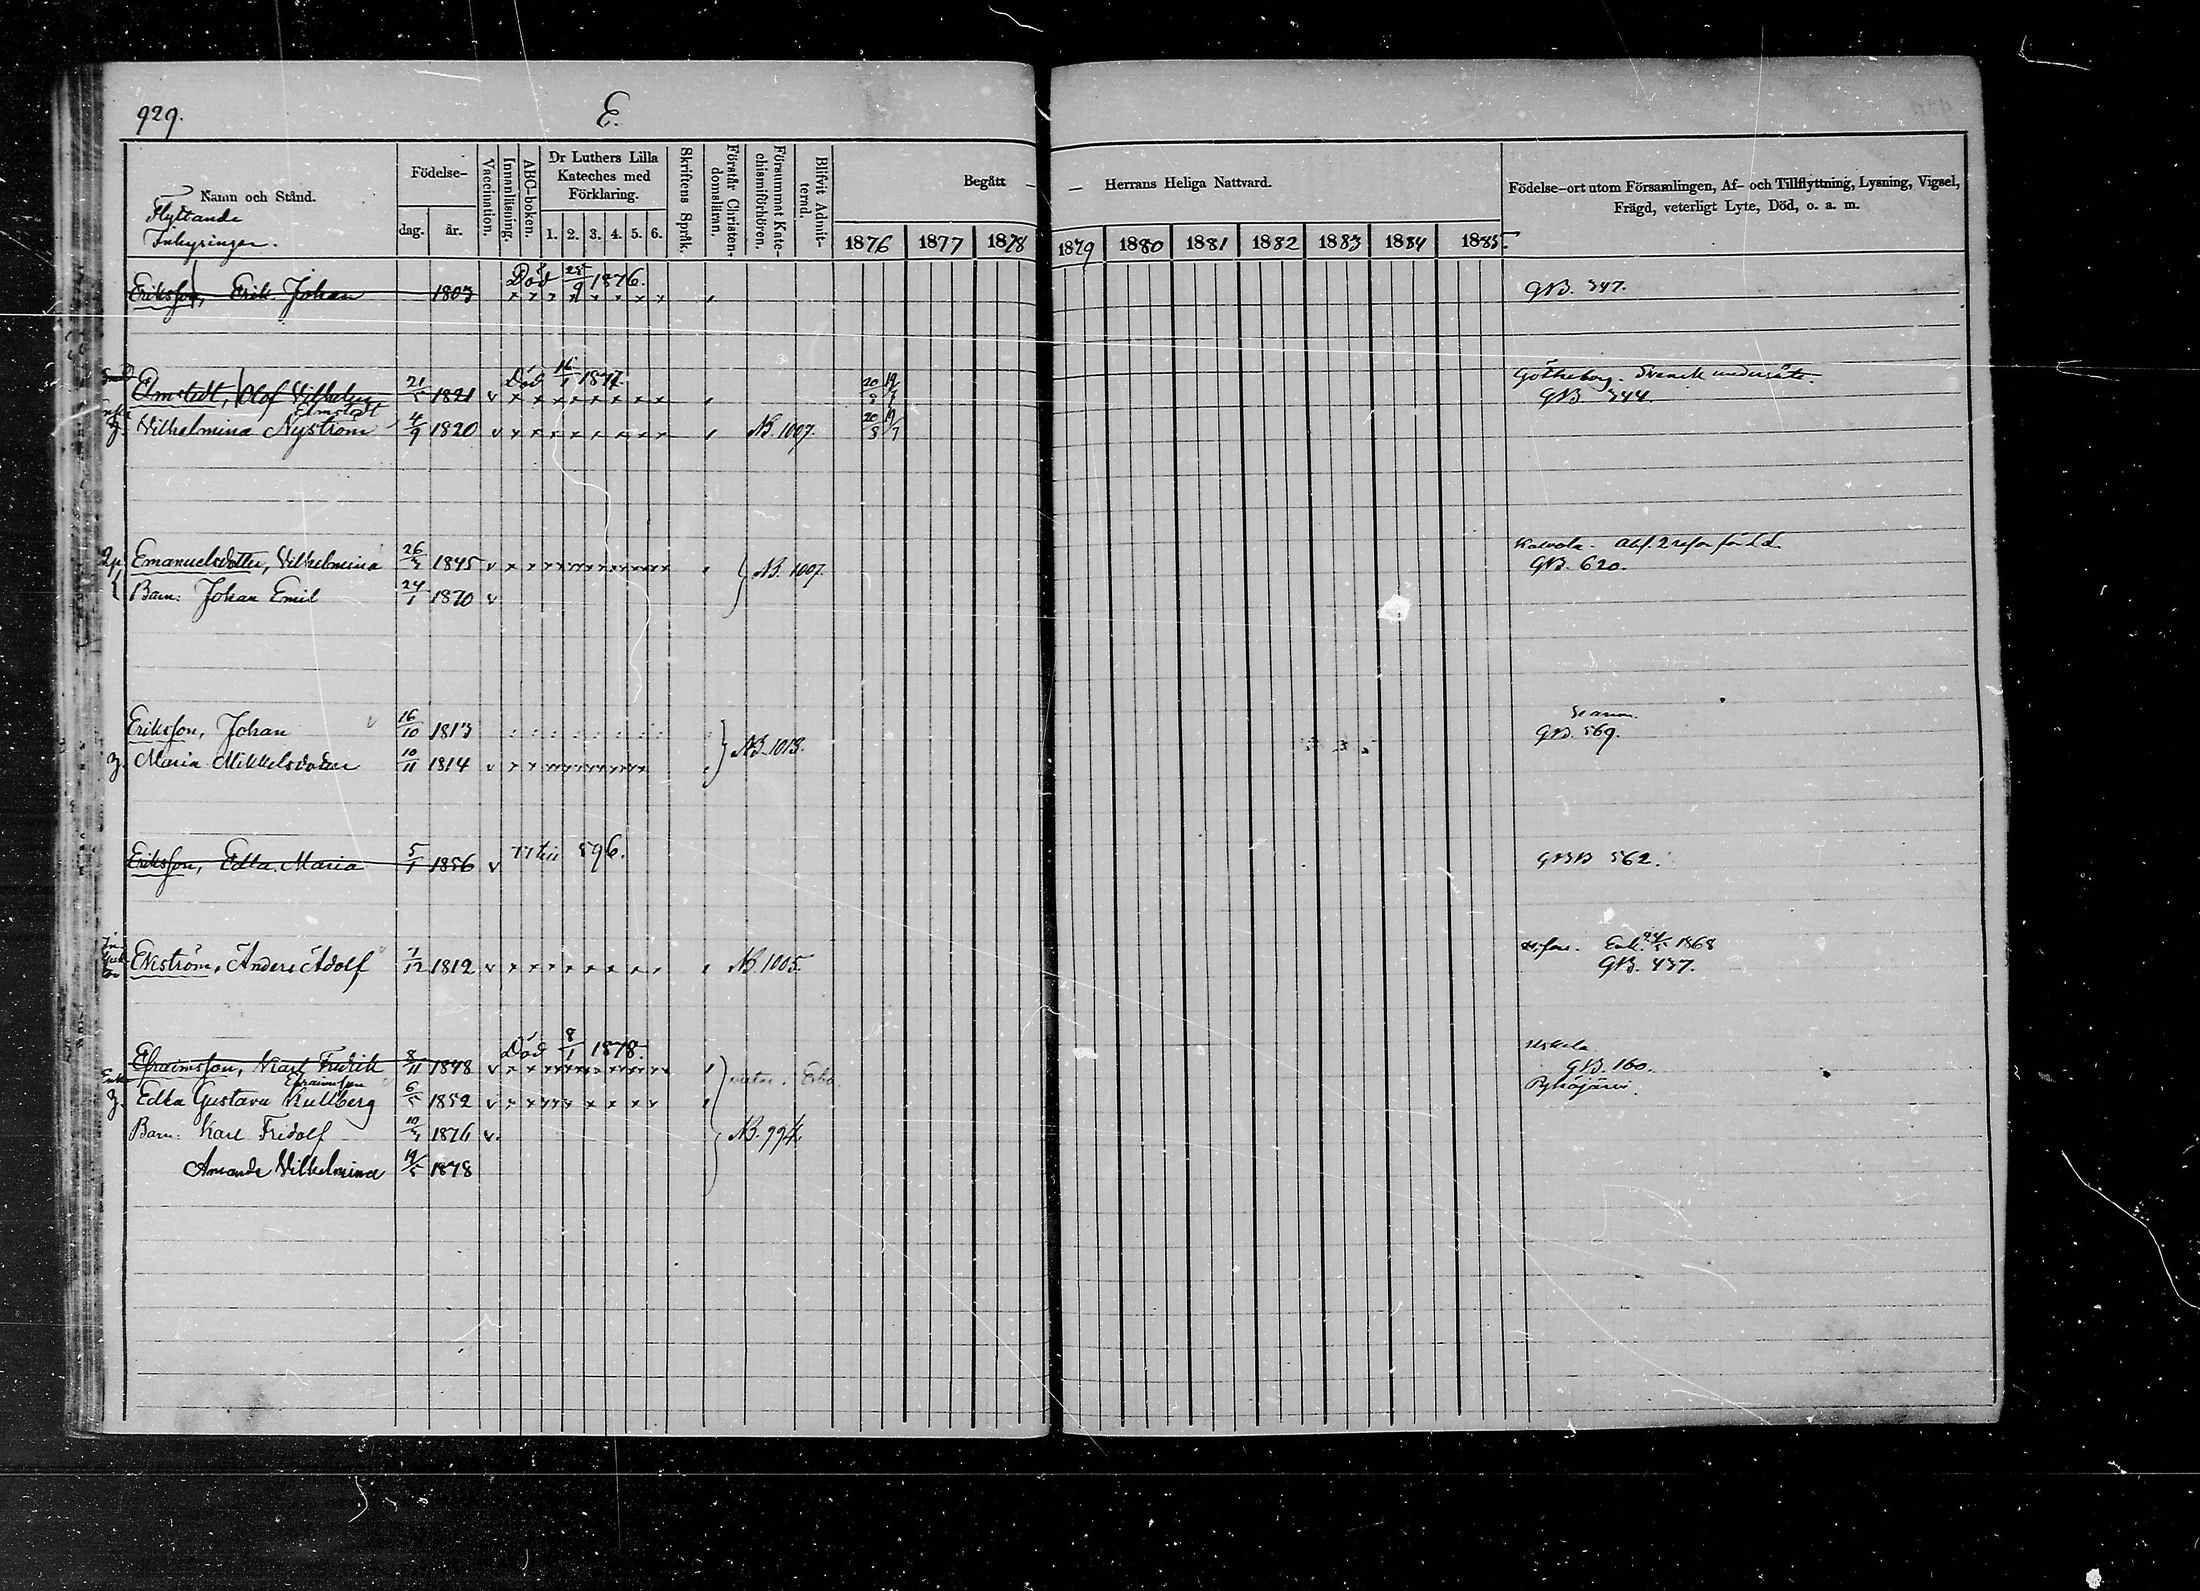 929.
E.
Namn och Stånd.
Flyttande
Inhysingar.
Födelse-
dag. år.
Vaccination.
Innanläsning.
ABC-boken.
Dr Luthers Lilla
Kateches med
Förklaring.
1. 2. 3. 4. 5. 6.
Skriftens Språk.
Förstår Christen-
domsläran.
Försummat Kate-
chismiförhören.
Blifvit Admit-
terad.
Begått — — Herrans Heliga Nattvard.
1876 1877 1878 1879 1880 1881 1882 1883 1884 1885.
Födelse-ort utom Församlingen, Af- och Tillflyttning, Lysning, Vigsel,
Frägd, veterligt Lyte, Död, o. a. m.
Död 25/9 1876.
Eriksson, Erik Johan 1803 GNB. 347.
Död 16/1 1877. Götheborg. Svensk undersåte.
Elmstedt, Olof Vilhelm 21/5 1821 v 20/8 19/7 GNB. 344.
Elmstedt
Vilhelmina Nyström 4/9 1820 v NB. 1007. 20/8 19/7
Emanuelsdotter, Vilhelmina 26/3 1845 v NB. 1007. GNB. 620.
Barn: Johan Emil 24/1 1870 v
Eriksson, Johan 16/10 1813 NB. 1013. GNB. 569.
Maria Mikkelsdotter 10/11 1814 v
Eriksson, Edla Maria 5/1 1856 v 596. GNB 562.
Ekström, Anders Adolf 7/12 1812 v NB. 1005. 1868
GNB. 437.
Död 8/1 1878. Uskela
Efraimsson, Karl Fredrik 8/11 1848 v GNB. 160.
Efraimsson
Enka
Edla Gustava Kullberg 6/5 1852 v Pyhäjärvi
Barn: Karl Fridolf 10/4 1876 v. NB. 994.
Amanda Vilhelmina 19/5 1878